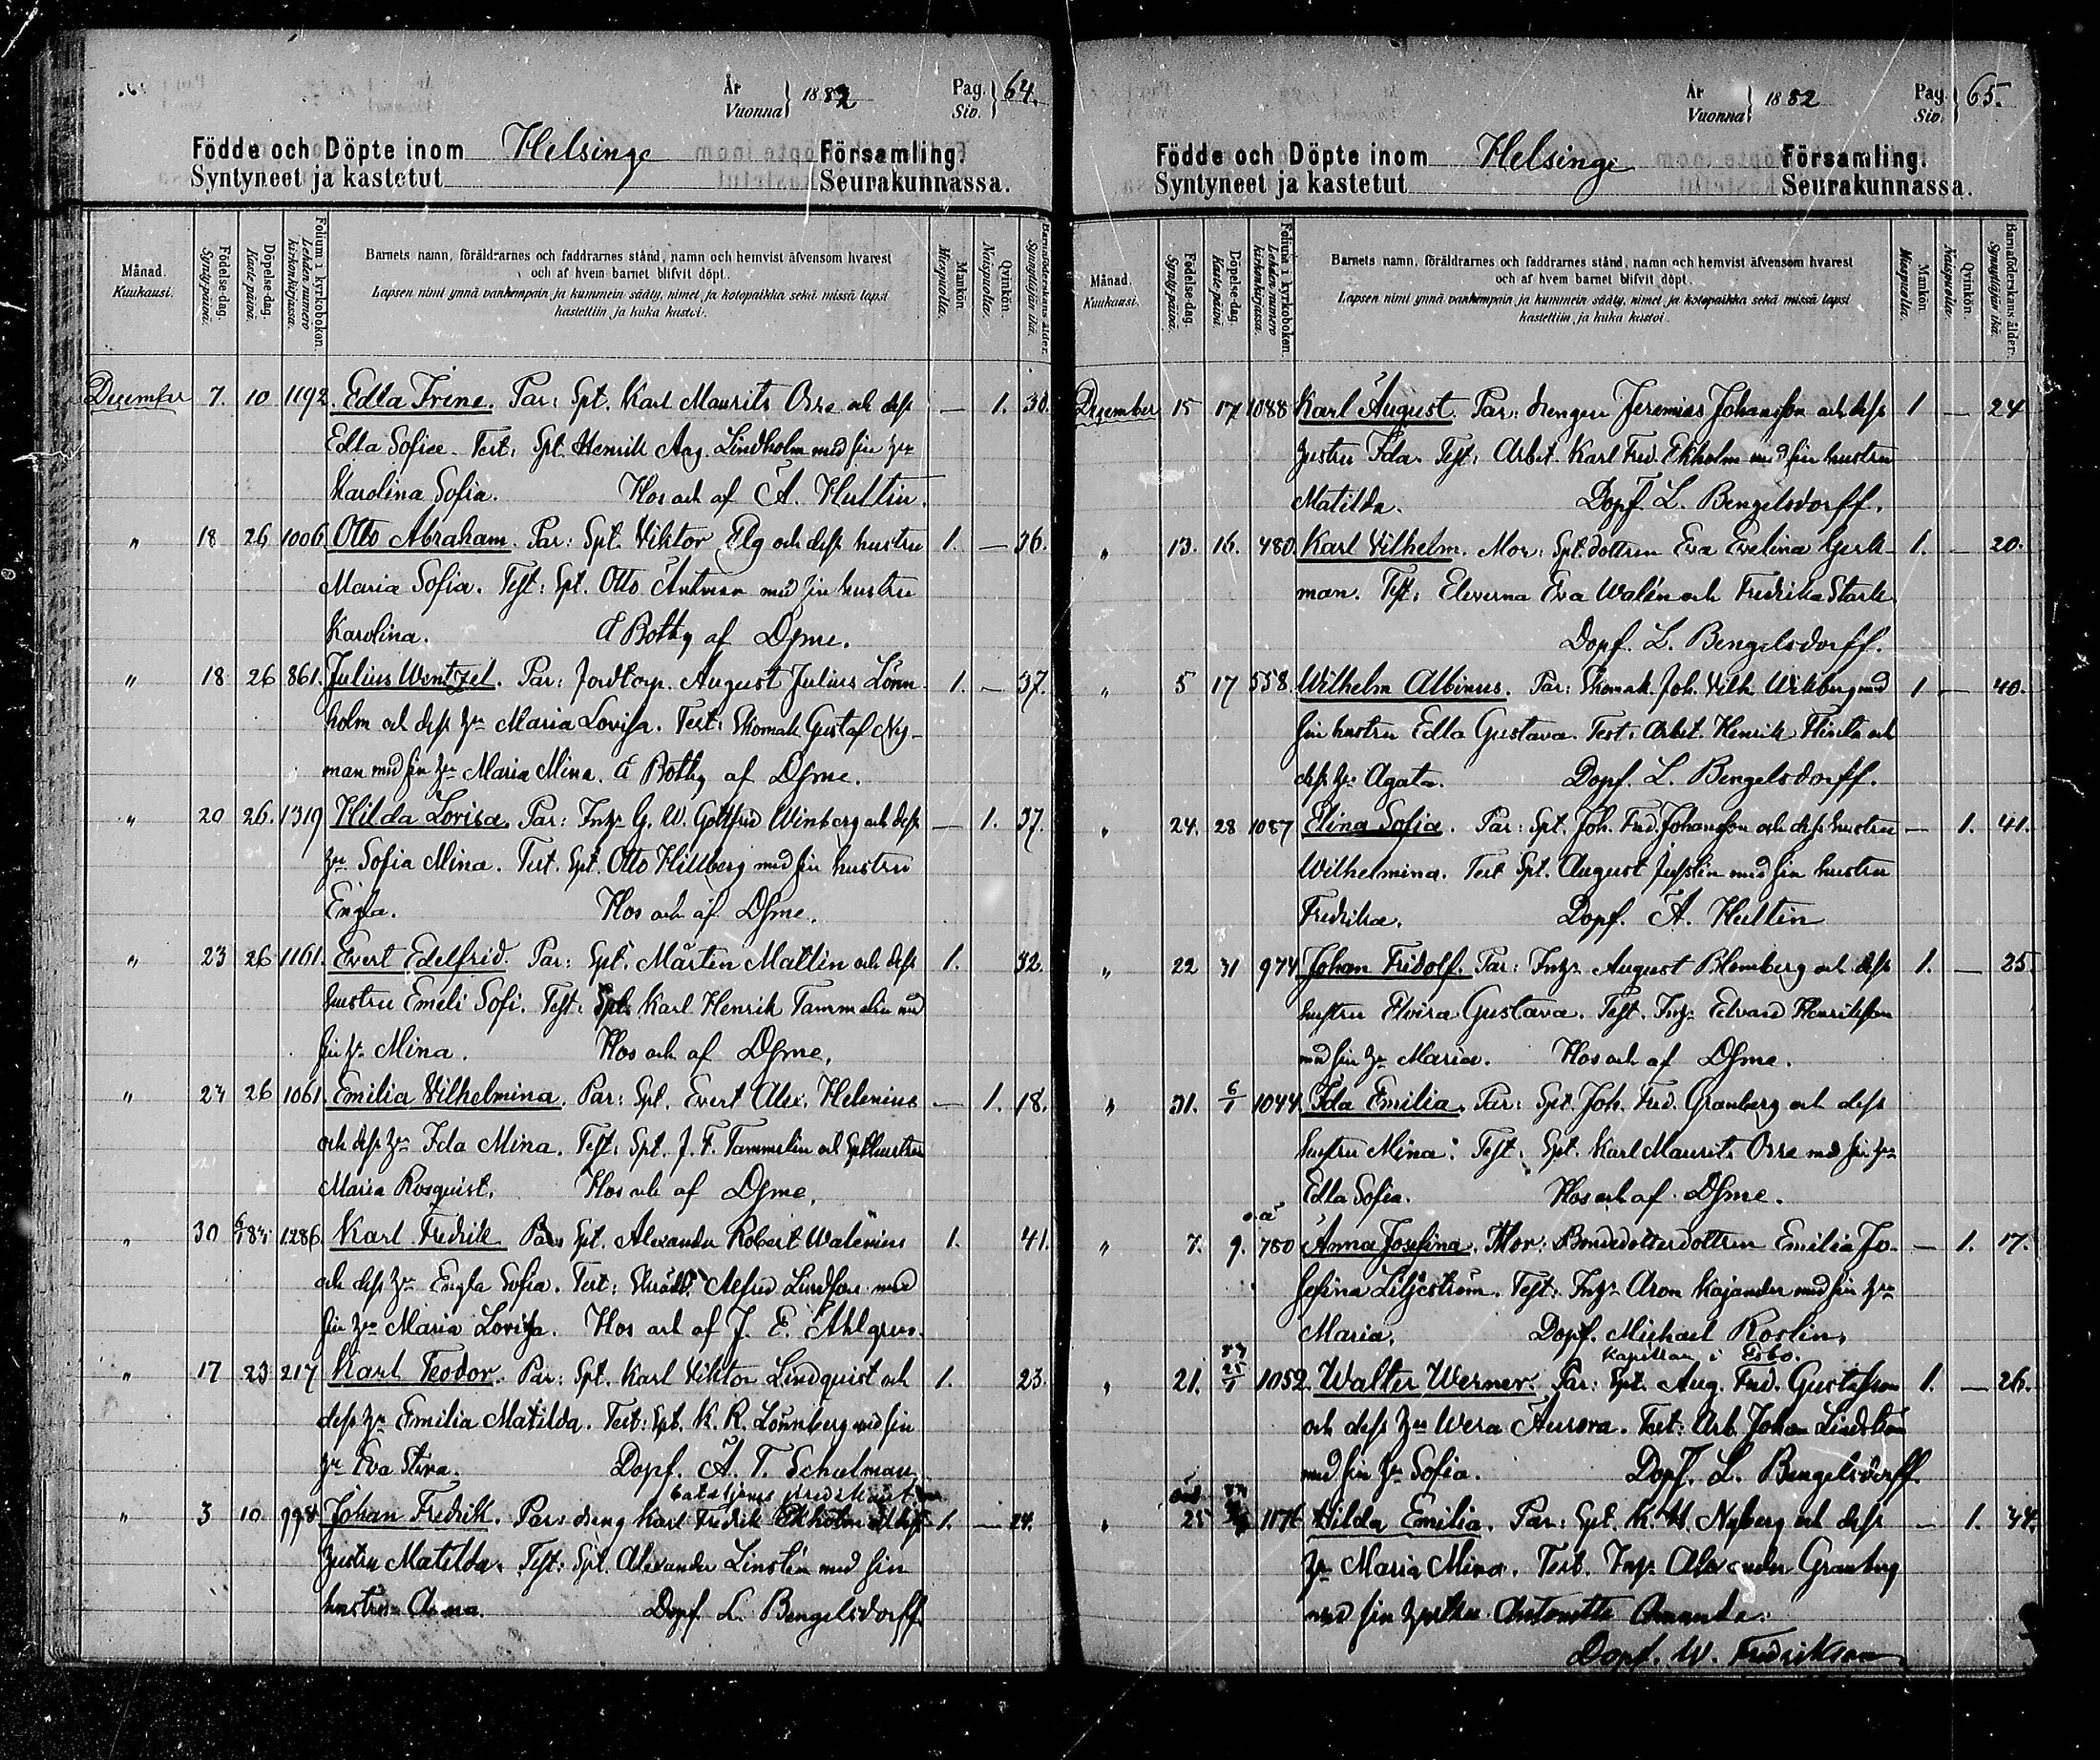 År
Vuonna 1882 Pag. Siv. 64.
Födde och Döpte inom Helsinge Församling.
Syntyneet ja kastetut Seurakunnassa.
Månad. Kuukausi. Födelse-dag. Syntypäivä. Döpelse-dag. Kastepäivä. Folium i kyrkoboken. Lehden numero kirkonkirjassa.
Barnets namn, föräldrarnes och faddrarnes stånd, namn och hemvist äfvensom hvarest
och af hvem barnet blifvit döpt.
Lapsen nimi ynnä vanhempain ja kummein sääty, nimet ja kotopaikka sekä missä lapsi
kastettiin ja kuka kastoi.
Mankön. Miespuolia. Qvinkön. Naispuolia. Barnaföderskans ålder. Synnyttäjän ikä.
December 7. 10 1192. Edla Irene. Par: Spt. Karl Maurits Orre och dess — 1. 30.
Edla Sofiee. Test: Spt. Henrik Aug. Lindholm med sin hu
Karolina Sofia. Hos och af A. Hultin.
" 18 26 1006 Otto Abraham. Par: Spt. Viktor Elg och dess hustru 1. — 36.
Maria Sofia. Test: Spt. Otto Antman med sin hustru
Karolina. å Botby af Dsme.
" 18 26 861. Julius Wentzel. Par: Jordtorp. August Julius Lönn- 1. — 37.
holm och dess hu Maria Lovisa. Test: Skomak Gustaf Ny-
man med sin hu Maria Mina. å Botby af Dsme.
" 20 26. 1319 Hilda Lovisa. Par: Inhs G. W. Gottfrid Winberg och dess — 1. 37.
hu Sofia Mina. Test. Spt. Otto Hillberg med sin hustru
Engla. Hos och af Dsme.
" 23 26 1161. Evert Edelfrid. Par: Spt. Mårten Mattlin och dess 1. 32.
hustru Emeli Sofi. Test: Spt. Karl Henrik Tammelin med
sin hu Mina. Hos och af Dsme.
" 24 26 1061. Emilia Vilhelmina. Par: Spt. Evert Alex. Helenius — 1. 18.
och dess hu Ida Mina. Test: Spt. J. F. Tammelin och Spthustrun
Maria Rosquist. Hos och af Dsme.
" 30 6/1 83. 1286. Karl Fredrik Par Spt. Alexander Robert Walenius 1. 41.
och dess hu Engla Sofia. Test: Alfred Lundfors med
sin hu Maria Lovisa. Hos och af J. E. Ahlgren.
" 17 23 217 Karl Teodor. Par: Spt. Karl Viktor Lindquist och 1. 23.
dess hu Emilia Matilda. Test: Spt. K. R. Lönnberg med sin
hu Eva Stina. Döpf. A. T. Schulman
" 3 10 998 Johan Fredrik. Par: dreng Karl Fredrik Ekholm och dess 1. — 24.
hustru Matilda. Test: Spt. Alexander Linstén med sin
hustru Anna. Döpf L. Bengelsdorff
År
Vuonna 1882 Pag. Siv. 65.
Födde och Döpte inom Helsinge Församling.
Syntyneet ja kastetut Seurakunnassa.
Månad. Kuukausi. Födelse-dag. Syntypäivä. Döpelse-dag. Kastepäivä. Folium i kyrkoboken. Lehden numero kirkonkirjassa.
Barnets namn, föräldrarnes och faddrarnes stånd, namn och hemvist äfvensom hvarest
och af hvem barnet blifvit döpt.
Lapsen nimi ynnä vanhempain ja kummein sääty, nimet ja kotopaikka sekä missä lapsi
kastettiin ja kuka kastoi.
Mankön. Miespuolia. Qvinkön. Naispuolia. Barnaföderskans ålder. Synnyttäjän ikä.
December 15 17 1088 Karl August. Par: drengen Jeremias Johansson och dess 1 — 24
hustru Ida. Test: Arbet. Karl Fred. Ekholm med sin hustru
Matilda. Döpf. L. Bengelsdorff.
" 13. 16. 480. Karl Vilhelm. Mor: Spt.dottren Eva Evelina Gerk- 1. — 20.
man. Test: Eleverna Eva Walén och Fredrika Stark
Döpf. L. Bengelsdorff.
" 5 17 558. Wilhelm Albinus. Par: Skomak. Joh. Vilh. Wikberg med 1 — 40.
sin hustru Edla Gustava. Test: Arbet. Henrik Flinta och
dess hu Agata. Döpf. L. Bengelsdorff.
" 24. 28 1087 Elina Sofia. Par: Spt. Joh. Fred. Johansson och dess hustru — 1. 41.
Wilhelmina. Test Spt. August Jusslin med sin hustru
Fredrika. Döpf. A. Hultin
" 22 31 974 Johan Fridolf. Par: Inhs August Blomberg och dess 1. — 25.
hustru Elvira Gustava. Test. Inhs Edvard Henriksson
med sin hu Maria. Hos och af Dsme.
" 31. 6/1 1044 Ida Emilia. Par: Spt. Joh. Fred. Granberg och dess
hustru Mina. Test: Spt. Karl Maurits Orre med sin hu
Edla Sofia. Hos och af Dsme.
" 7. 9. 780 Anna Josefina. Mor: Bondedotterdottren Emilia Jo- — 1. 17.
sefina Liljeström. Test: Inhs Aron Kajander med sin hu
Maria. Döpf. Michael Roslin,
Kapellan i Esbo.
" 21. 83 25/1 1052. Walter Werner. Par: Spt. Aug. Fred. Gustafsson 1. — 26.
och dess hu Wera Aurora. Test: Arb. Johan Lindström
med sin hu Sofia. Döpf. L. Bengelsdorff.
" 25 1176 Hilda Emilia. Par: Spt. K. H. Nyberg och dess — 1. 34.
hu Maria Mina. Test. Inhs Alexander Granberg
med sin hustru Antonetta Amanda.
Döpf. W. Fredrikson